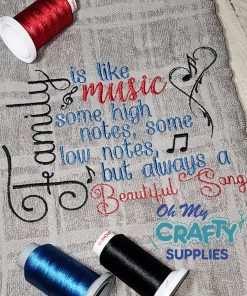 Family
is like
music
some high
notes, some
low notes,
but always a
Beautiful Song
Oh My
CRAFTY
SUPPLIES